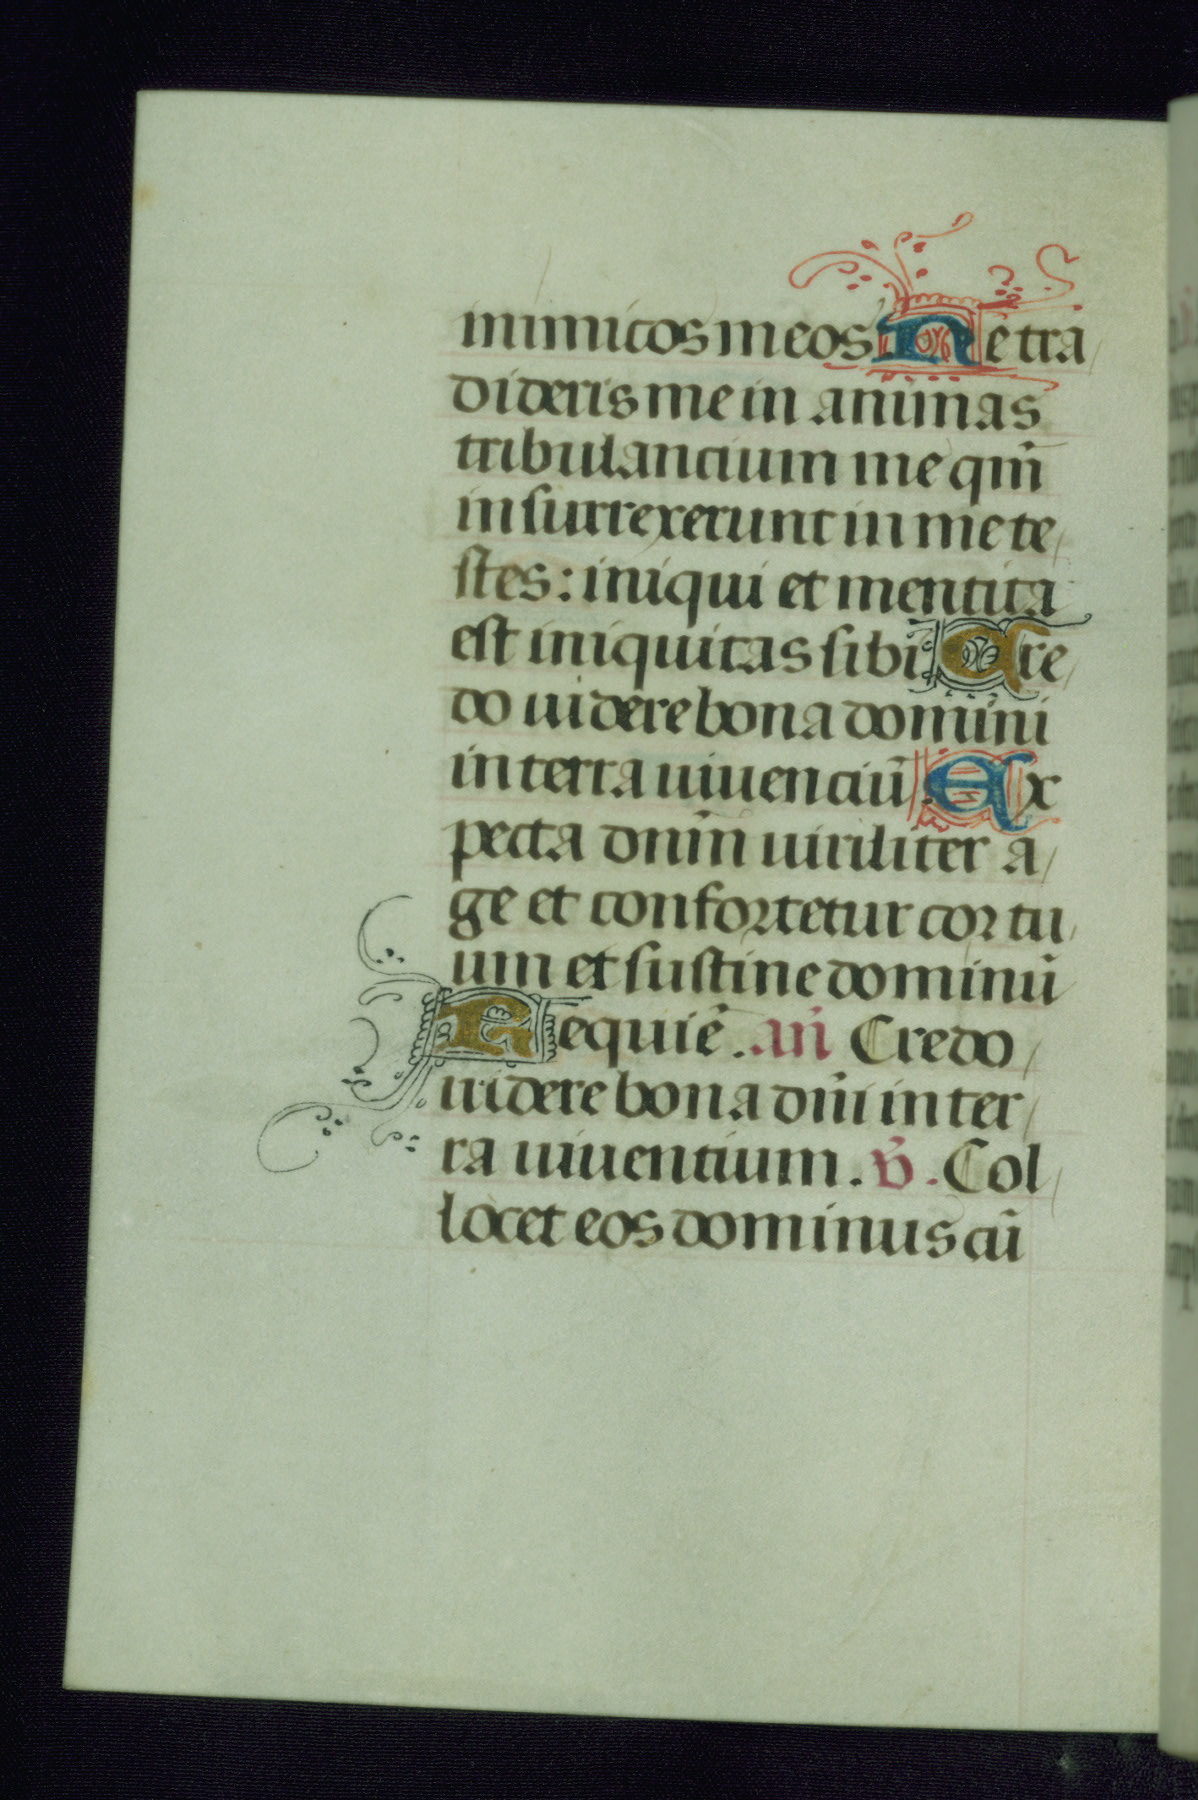 inimicos meos. Ne tra
dideris me in animas
tribulancium me qm̃
insurrexerunt in me te
stes: iniqui et mentita
est iniquitas sibi. Cre
do uidere bona domini
in terra uiuenciū. Ex
pecta dnm̄ uiriliter a
ge et confortetur cor tu
um et sustine dominū
Requiē. an̄ Credo
uidere bona dn̄i in ter
ra uiuentium. v̄. Col
locet eos dominus cū